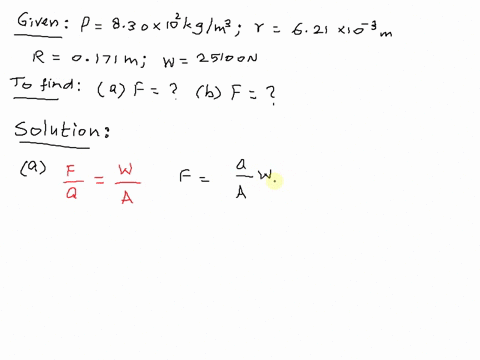 Given: ρ = 8.30 × 10² kg/m³; r = 6.21 × 10⁻³ m
R = 0.171 m; W = 25100 N
To find: (a) F = ? (b) F = ?
Solution:
(a) F/a = W/A F = a/A W.